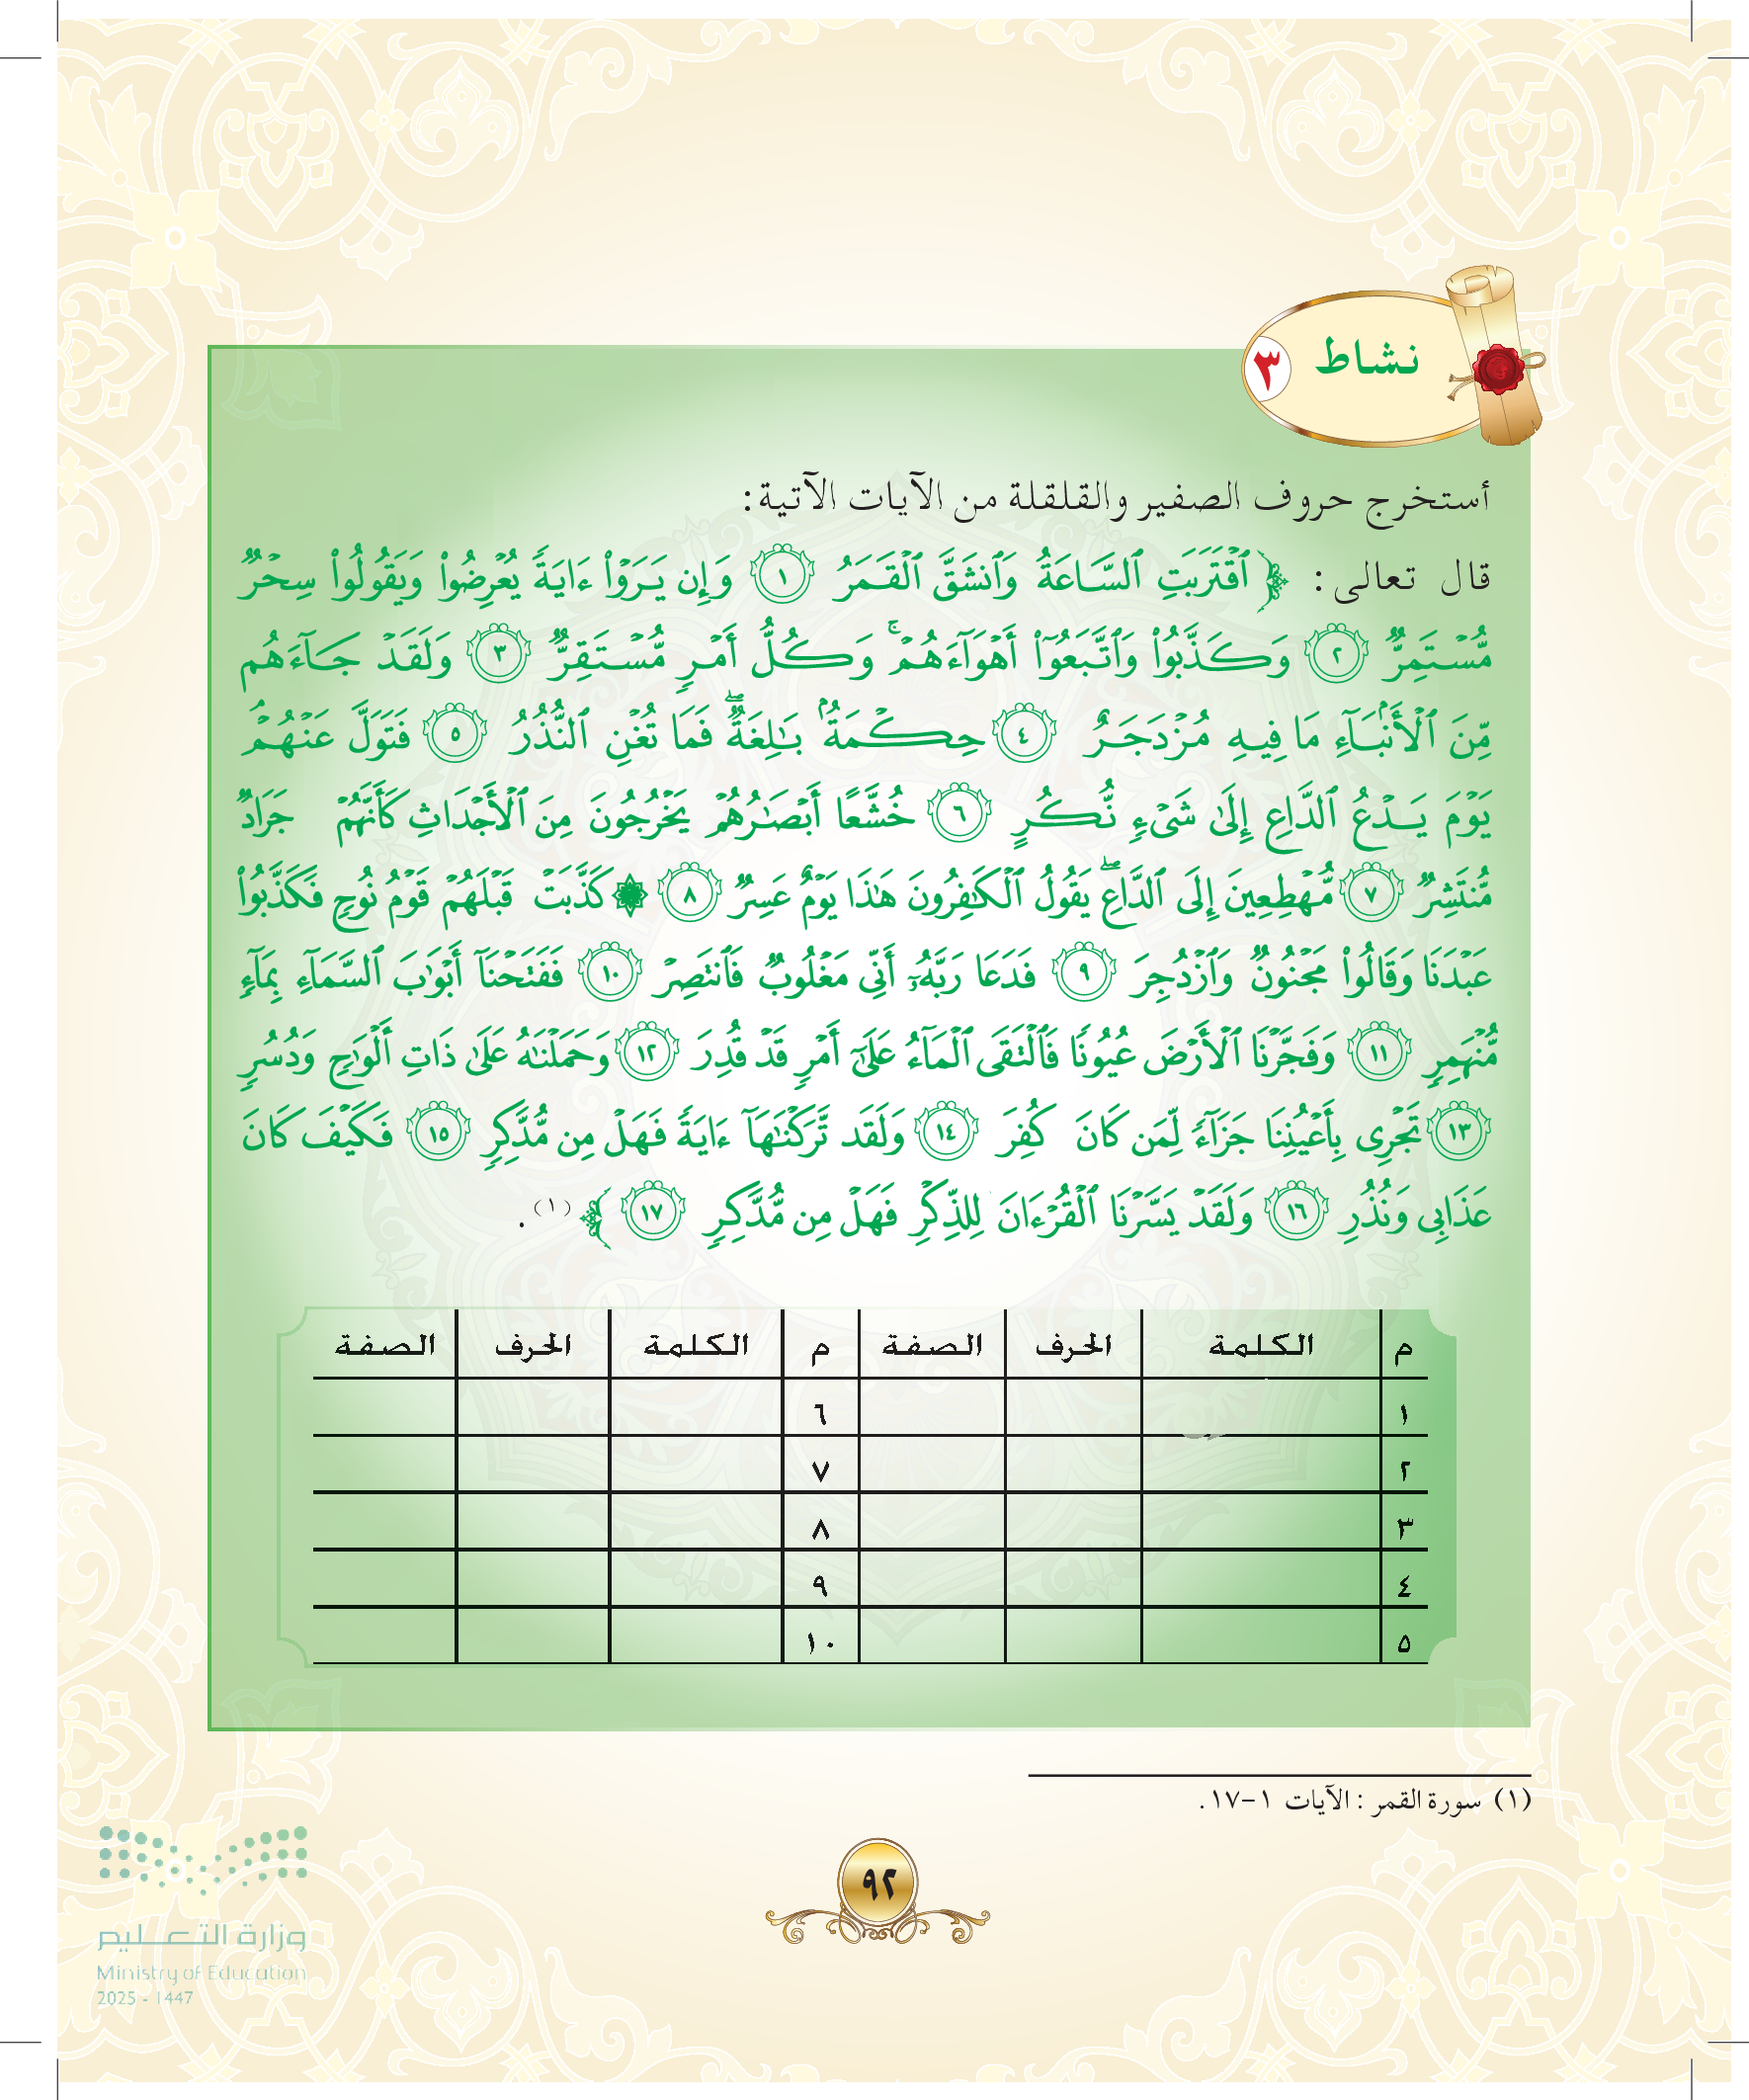 نشاط ٣
أستخرج حروف الصفير والقلقلة من الآيات الآتية:
قال تعالى: ﴿ ٱقۡتَرَبَتِ ٱلسَّاعَةُ وَٱنشَقَّ ٱلۡقَمَرُ ١ وَإِن يَرَوۡاْ ءَايَةٗ يُعۡرِضُواْ وَيَقُولُواْ سِحۡرٞ
مُّسۡتَمِرّٞ ٢ وَكَذَّبُواْ وَٱتَّبَعُوٓاْ أَهۡوَآءَهُمۡۚ وَكُلُّ أَمۡرٖ مُّسۡتَقِرّٞ ٣ وَلَقَدۡ جَآءَهُم
مِّنَ ٱلۡأَنۢبَآءِ مَا فِيهِ مُزۡدَجَرٌ ٤ حِكۡمَةُۢ بَٰلِغَةٞۖ فَمَا تُغۡنِ ٱلنُّذُرُ ٥ فَتَوَلَّ عَنۡهُمۡۘ
يَوۡمَ يَدۡعُ ٱلدَّاعِ إِلَىٰ شَيۡءٖ نُّكُرٍ ٦ خُشَّعًا أَبۡصَٰرُهُمۡ يَخۡرُجُونَ مِنَ ٱلۡأَجۡدَاثِ كَأَنَّهُمۡ جَرَادٞ
مُّنتَشِرٞ ٧ مُّهۡطِعِينَ إِلَى ٱلدَّاعِۖ يَقُولُ ٱلۡكَٰفِرُونَ هَٰذَا يَوۡمٌ عَسِرٞ ٨ ۞ كَذَّبَتۡ قَبۡلَهُمۡ قَوۡمُ نُوحٖ فَكَذَّبُواْ
عَبۡدَنَا وَقَالُواْ مَجۡنُونٞ وَٱزۡدُجِرَ ٩ فَدَعَا رَبَّهُۥٓ أَنِّي مَغۡلُوبٞ فَٱنتَصِرۡ ١٠ فَفَتَحۡنَآ أَبۡوَٰبَ ٱلسَّمَآءِ بِمَآءٖ
مُّنۡهَمِرٖ ١١ وَفَجَّرۡنَا ٱلۡأَرۡضَ عُيُونٗا فَٱلۡتَقَى ٱلۡمَآءُ عَلَىٰٓ أَمۡرٖ قَدۡ قُدِرَ ١٢ وَحَمَلۡنَٰهُ عَلَىٰ ذَاتِ أَلۡوَٰحٖ وَدُسُرٖ
١٣ تَجۡرِي بِأَعۡيُنِنَا جَزَآءٗ لِّمَن كَانَ كُفِرَ ١٤ وَلَقَد تَّرَكۡنَٰهَآ ءَايَةٗ فَهَلۡ مِن مُّدَّكِرٖ ١٥ فَكَيۡفَ كَانَ
عَذَابِي وَنُذُرِ ١٦ وَلَقَدۡ يَسَّرۡنَا ٱلۡقُرۡءَانَ لِلذِّكۡرِ فَهَلۡ مِن مُّدَّكِرٖ ١٧ ﴾ (١).
م الكلمة الحرف الصفة م الكلمة الحرف الصفة
١ ٦
٢ ٧
٣ ٨
٤ ٩
٥ ١٠
(١) سورة القمر : الآيات ١-١٧.
٩٢
وزارة التعليم
Ministry of Education
2025 - 1447